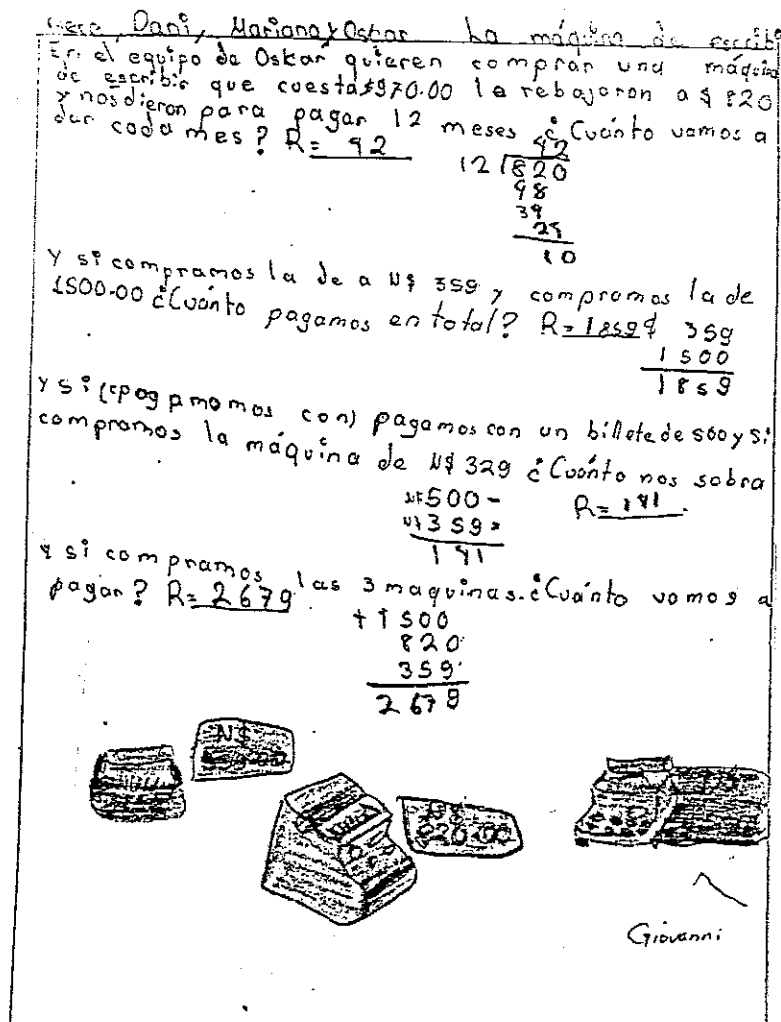 Dani, Mariana y Oskar La máquina de escribi
En el equipo de Oskar quieren comprar una máquina
de escribir que cuesta $970.00 le rebajaron a $ 820
y nos dieron para pagar 12 meses ¿Cuánto vamos a
dar cada mes? R= 92
92
12 820
98
39
29
10
Y si compramos la de a N$ 359 y compramos la de
1500.00 ¿Cuánto pagamos en total? R= 1859 $
359
1 500
1859
Y si (cpagamomos con) pagamos con un billete de 500 y si
compramos la máquina de N$ 329 ¿Cuánto nos sobra
R= 141
N$ 500 -
N$ 359
141
Y si compramos las 3 maquinas. ¿Cuánto vamos a
pagar? R= 2679
+ 1 500
820
359
2679
N$
N$
820.00
Giovanni